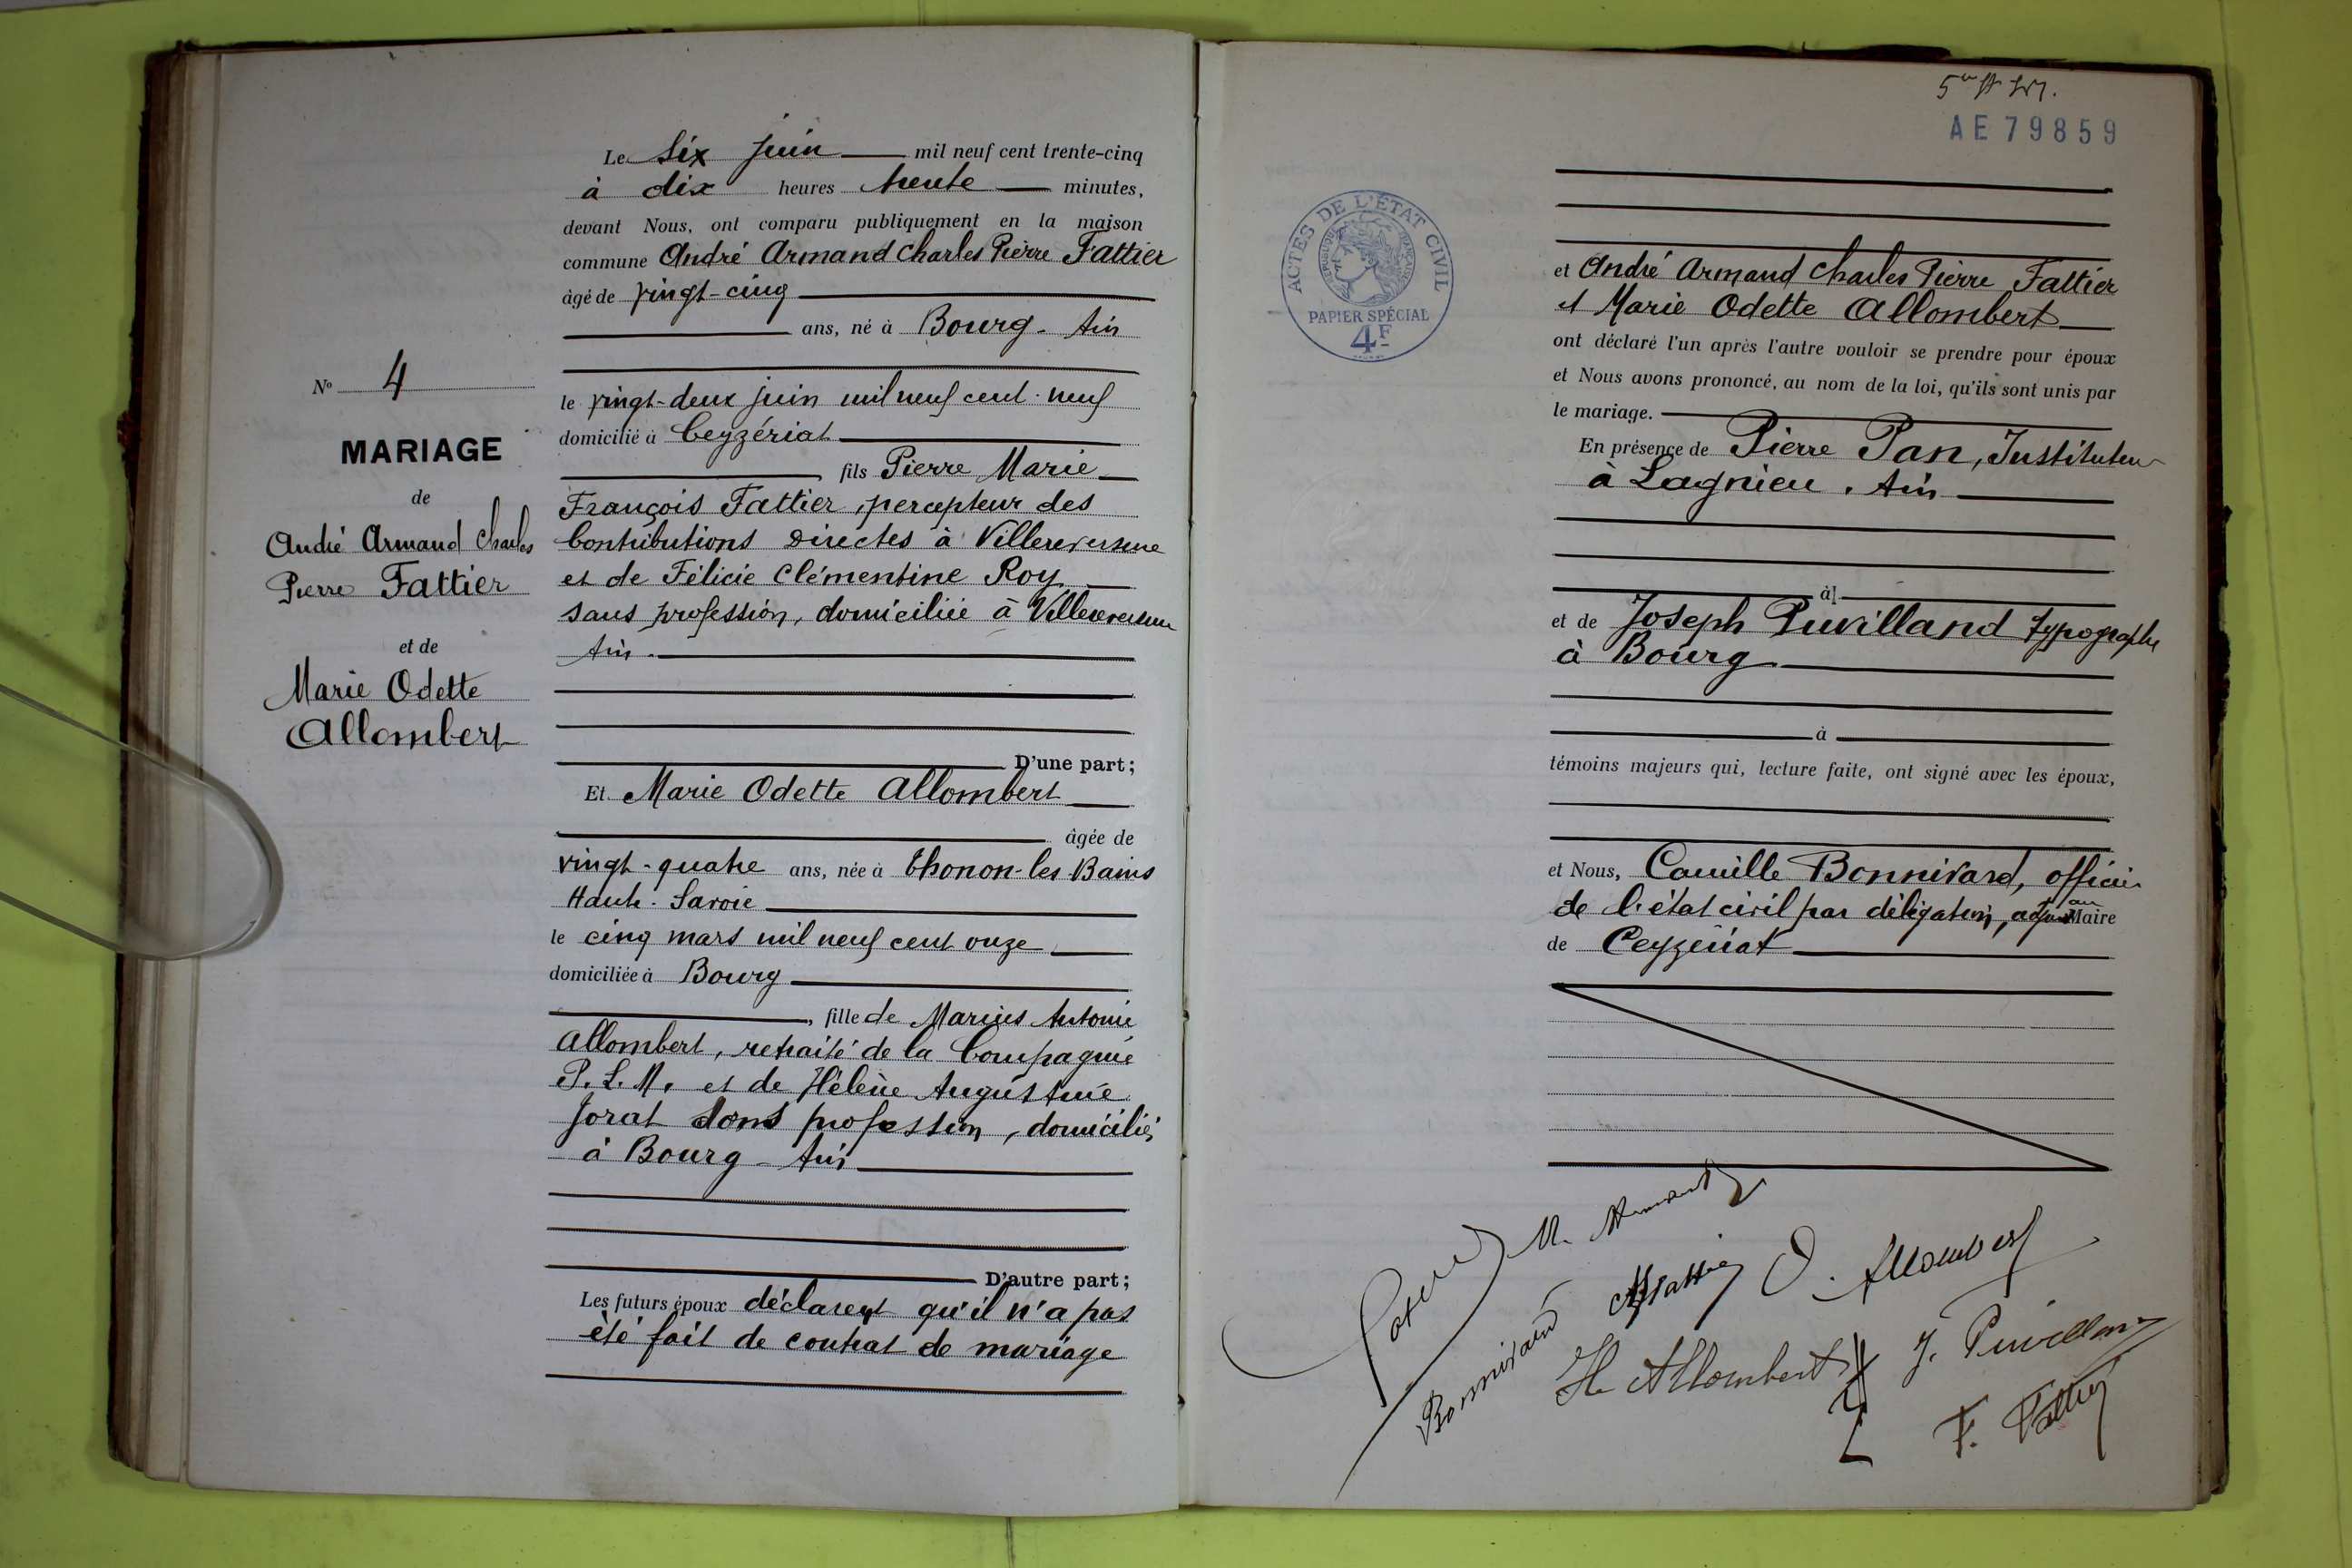 Le six juin mil neuf cent trente-cinq
à dix heures trente minutes,
devant Nous, ont comparu publiquement en la maison
commune André Armand Charles Pierre Fattier
âgé de vingt-cinq
ans, né à Bourg - Ain
le vingt-deux juin mil neuf cent neuf
domicilié à Ceyzériat
fils Pierre Marie
François Fattier, percepteur des
Contributions Directes à Villereversure
et de Félicie Clémentine Roy
sans profession, domiciliée à Villereversure
Ain.
D'une part;
Et Marie Odette Allombert
âgée de
vingt-quatre ans, née à Thonon-les-Bains
Haute-Savoie
le cinq mars mil neuf cent onze
domiciliée à Bourg
, fille de Marius Antonie
Allombert, retraité de la Compagnie
P.L.M. et de Hélène Augustine
Jorat sans profession, domiciliés
à Bourg - Ain
D'autre part;
Les futurs époux déclarent qu'il n'a pas
été fait de contrat de mariage
No 4
MARIAGE
de
André Armand Charles
Pierre Fattier
et de
Marie Odette
Allombert
AE 79859
ACTES DE L'ÉTAT CIVIL
RÉPUBLIQUE FRANÇAISE
PAPIER SPÉCIAL
4F
et André Armand Charles Pierre Fattier
et Marie Odette Allombert
ont déclaré l'un après l'autre vouloir se prendre pour époux
et Nous avons prononcé, au nom de la loi, qu'ils sont unis par
le mariage.
En présence de Pierre Pan, Instituteur
à Lagnieu. Ain
à
et de Joseph Puvilland typographe
à Bourg
à
témoins majeurs qui, lecture faite, ont signé avec les époux,
et Nous, Camille Bonnivard, officier
de l'état civil par délégation, adjoint au Maire
de Ceyzériat
O. Allombert
Bonnivard
H. Allombert
J. Puvilland
F. Fattier